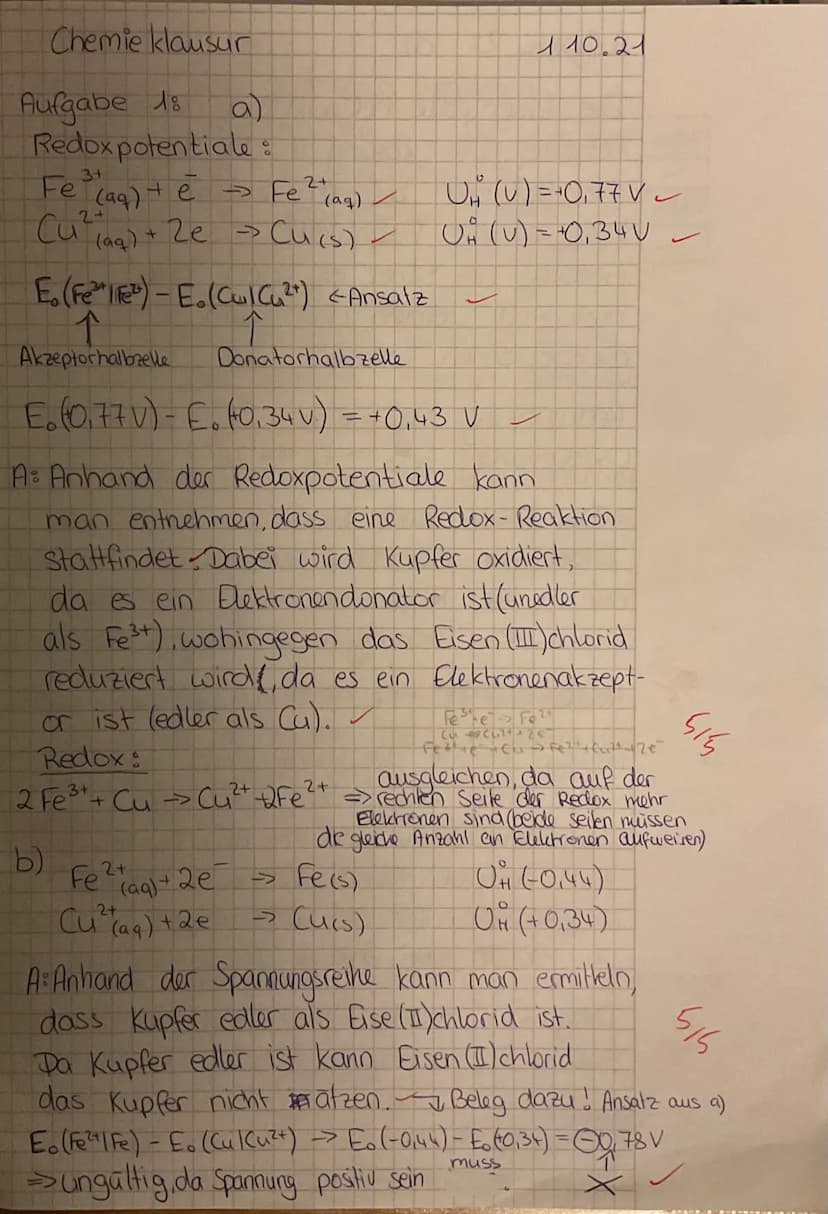 Chemieklausur 1 10.21
Aufgabe 1: a)
Redoxpotentiale:
Fe³⁺(aq) + e⁻ → Fe²⁺(aq) ✓ U°H (V) = +0,77 V ✓
Cu²⁺(aq) + 2e → Cu(s) ✓ U°H (V) = +0,34V ✓
E₀(Fe³⁺|Fe²⁺) – E₀(Cu|Cu²⁺) ← Ansatz ✓
↑ ↑
Akzeptorhalbzelle Donatorhalbzelle
E₀(+0,77V) – E₀(+0,34V) = +0,43 V ✓
A: Anhand der Redoxpotentiale kann
man entnehmen, dass eine Redox-Reaktion
stattfindet. ✓ Dabei wird Kupfer oxidiert,
da es ein Elektronendonator ist (unedler
als Fe³⁺), wohingegen das Eisen(III)chlorid
reduziert wird, da es ein Elektronenakzept-
or ist (edler als Cu). ✓
Fe³⁺+e⁻ → Fe²⁺
Cu → Cu²⁺+2e⁻
Fe³⁺+e⁻+Cu → Fe²⁺+Cu²⁺+2e⁻
5/5
Redox:
2Fe³⁺ + Cu → Cu²⁺ + 2Fe²⁺ ⇒ ausgleichen, da auf der
rechten Seite der Redox mehr
Elektronen sind (beide seiten müssen
die gleiche Anzahl an Elektronen aufweisen)
b) Fe²⁺(aq) + 2e⁻ → Fe(s) U°H (-0,44)
Cu²⁺(aq) + 2e → Cu(s) U°H (+0,34)
A: Anhand der Spannungsreihe kann man ermitteln,
dass Kupfer edler als Eise(II)chlorid ist.
5/5
Da Kupfer edler ist kann Eisen(II)chlorid
das Kupfer nicht ätzen. ↴ Beleg dazu! Ansatz aus a)
E₀(Fe²⁺|Fe) – E₀(Cu|Cu²⁺) → E₀(-0,44) – E₀(+0,34) = ⊖0,78V
⇒ ungültig, da Spannung positiv sein muss. ↑ X ✓